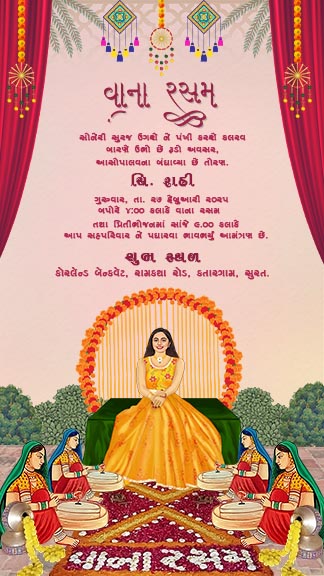 વાના રસમ
સોનેરી સુરજ ઉગશે ને પંખી કરશે કલરવ
બારણે ઉભો છે રૂડો અવસર,
આસોપાલવના બંધાવ્યા છે તોરણ.
ચિ. રાહી
ગુરુવાર, તા. ૨૭ ફેબ્રુઆરી ૨૦૨૫
બપોરે ૪:૦૦ કલાકે વાના રસમ
તથા પ્રિતીભોજનમાં સાંજે ૭.૦૦ કલાકે
આપ સહપરિવાર ને પધારવા ભાવભર્યું આમંત્રણ છે.
શુભ સ્થળ
કોરલેન્ડ બેન્કવેટ, રામકથા રોડ, કતારગામ, સુરત.
વાના રસમ